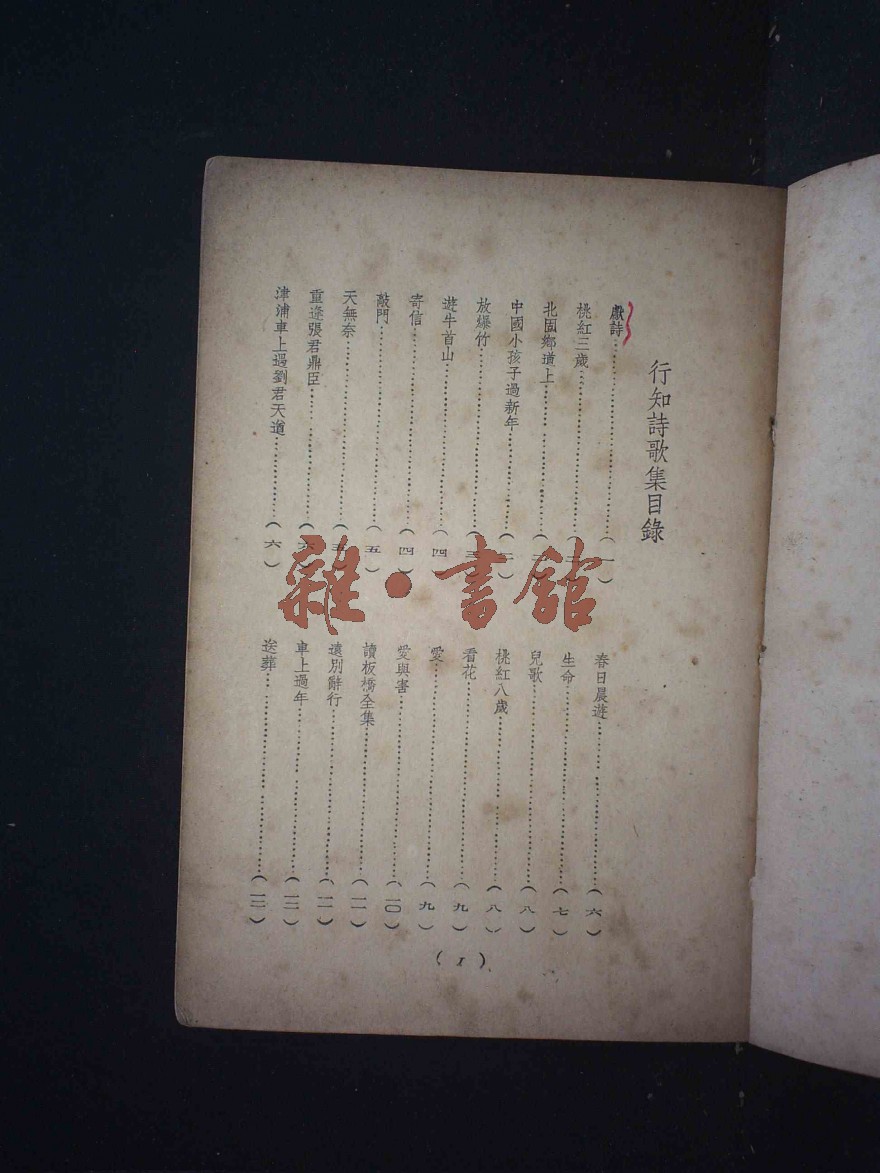 行知詩歌集目錄
獻詩……(一)
桃紅三歲……
北固鄉道上……
中國小孩子過新年……
放爆竹……(三)
遊牛首山……(四)
寄信……(四)
敲門……(五)
天無奈……(五)
重逢張君鼎臣……(六)
津浦車上遇劉君天道……(六)
春日晨遊……(六)
生命……(七)
兒歌……(八)
桃紅八歲……(八)
看花……(九)
愛……(九)
愛與害……(一〇)
讀板橋全集……(一一)
遠別辭行……(一一)
車上過年……(一二)
送葬……(一二)
(1)
雜·書館